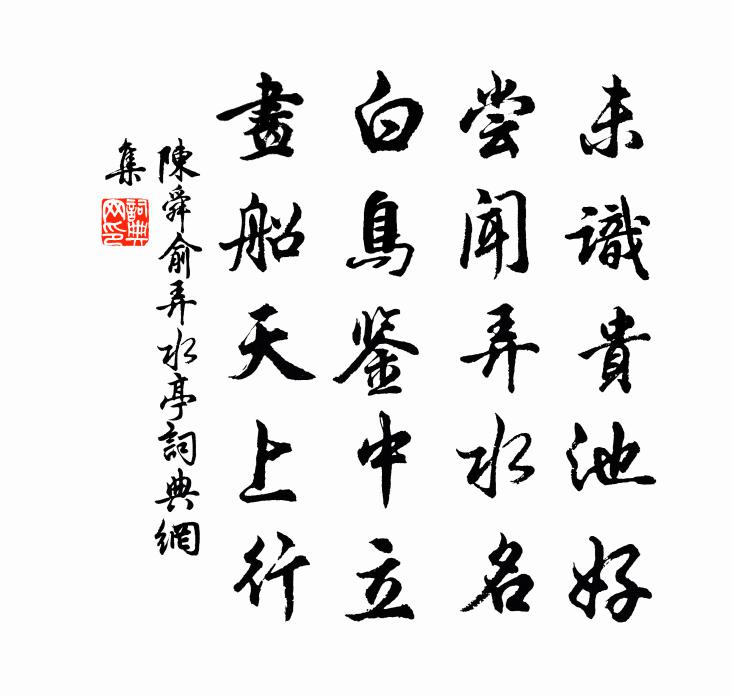 未識貴池好
尝聞弄水名
白鳥鉴中立
畫船天上行
陳舜俞弄水亭詞典網
集
詞典
网印